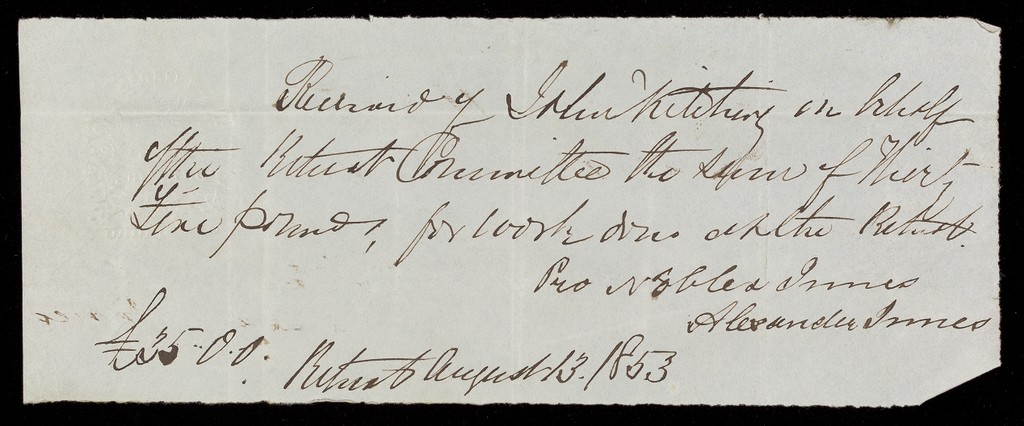 Received of John Kitching on behalf
of the Retreat Committee the sum of Thirty
Five pounds, for work done at the Retreat.
Pro Nobles & Innes
Alexander Innes
£35-0.0.
Retreat August 13. 1853